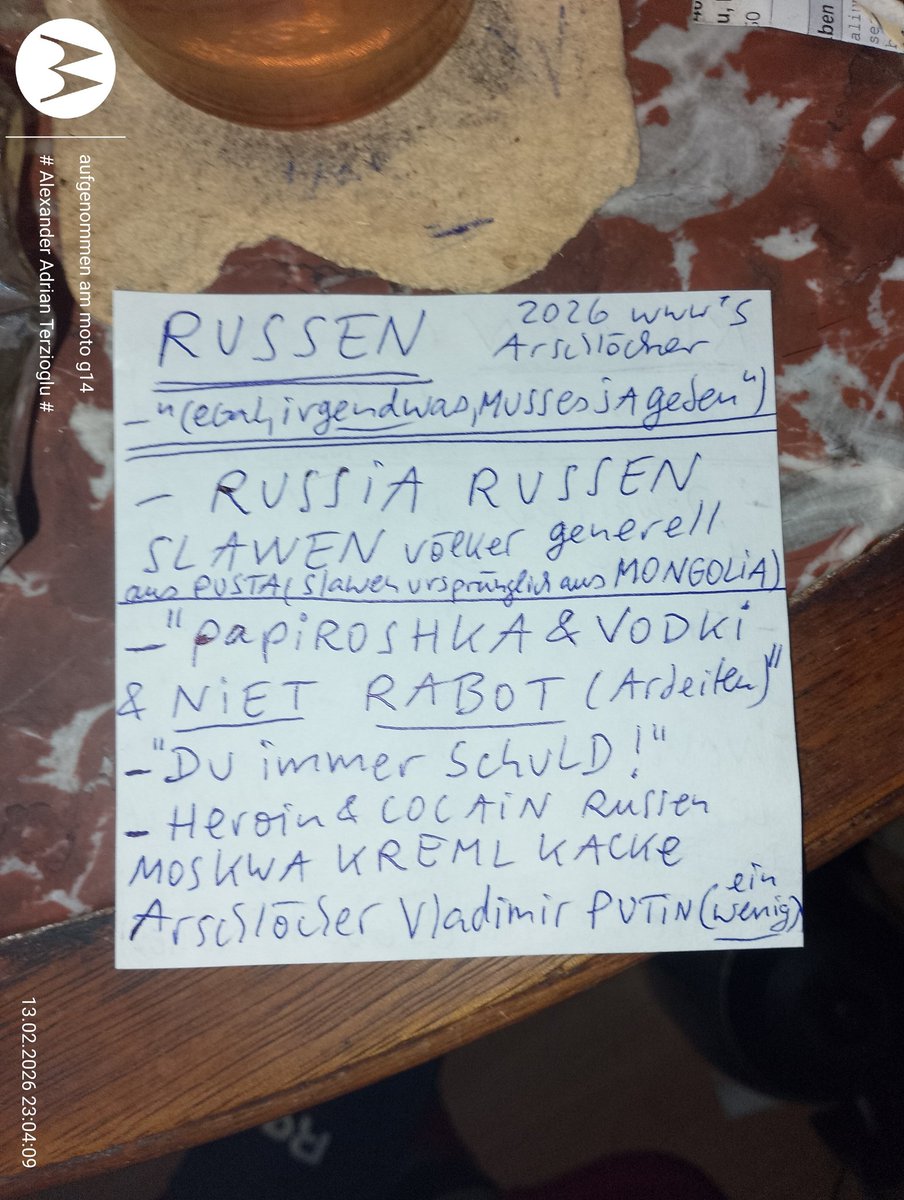 RUSSEN
2026 www's
Arschlöcher
- "(egal, irgendwas, MUSS es JA geben")
- RUSSiA RUSSEN
SLAWEN völker generell
aus PUSTA (Slawen ursprünglich aus MONGOLiA)
- "papiROSHKA & VODKi
& NiET RABOT (Arbeiten)"
- "DU immer SchULD!"
- Heroin & COCAiN Russen
MOSKWA KREML KACKe
Arschlöcher Vladimir PUTiN (ein wenig)
aufgenommen am moto g14
# Alexander Adrian Terzioglu #
13.02.2026 23:04:09
ben